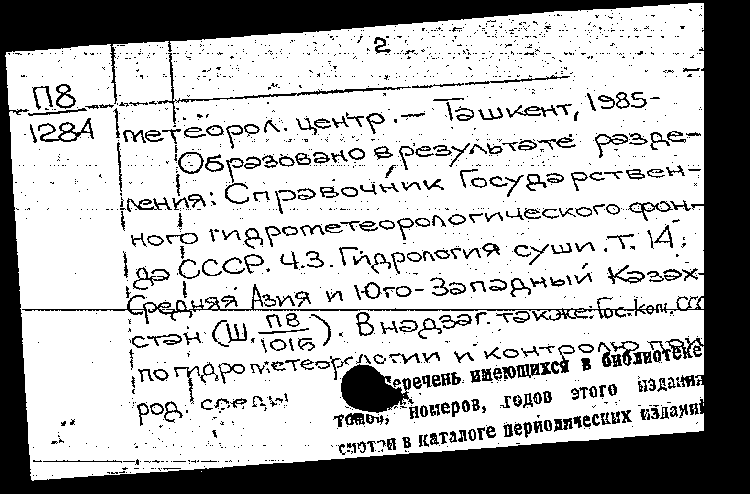 2
П8
1284 метеорол. центр. — Ташкент, 1985-
Образовано в результате разде-
ления: Справочник Государствен-
ного гидрометеорологического фон-
да СССР. Ч.3. Гидрология суши. Т. 14:
Средняя Азия и Юго-Западный Казах-
стан (Ш, П8/1016). В надзаг. также: Гос. ком. СССР
по гидрометеорологии и контролю при
род. среды
Перечень имеющихся в библиотеке
томов, номеров, годов этого издания
смотри в каталоге периодических изданий